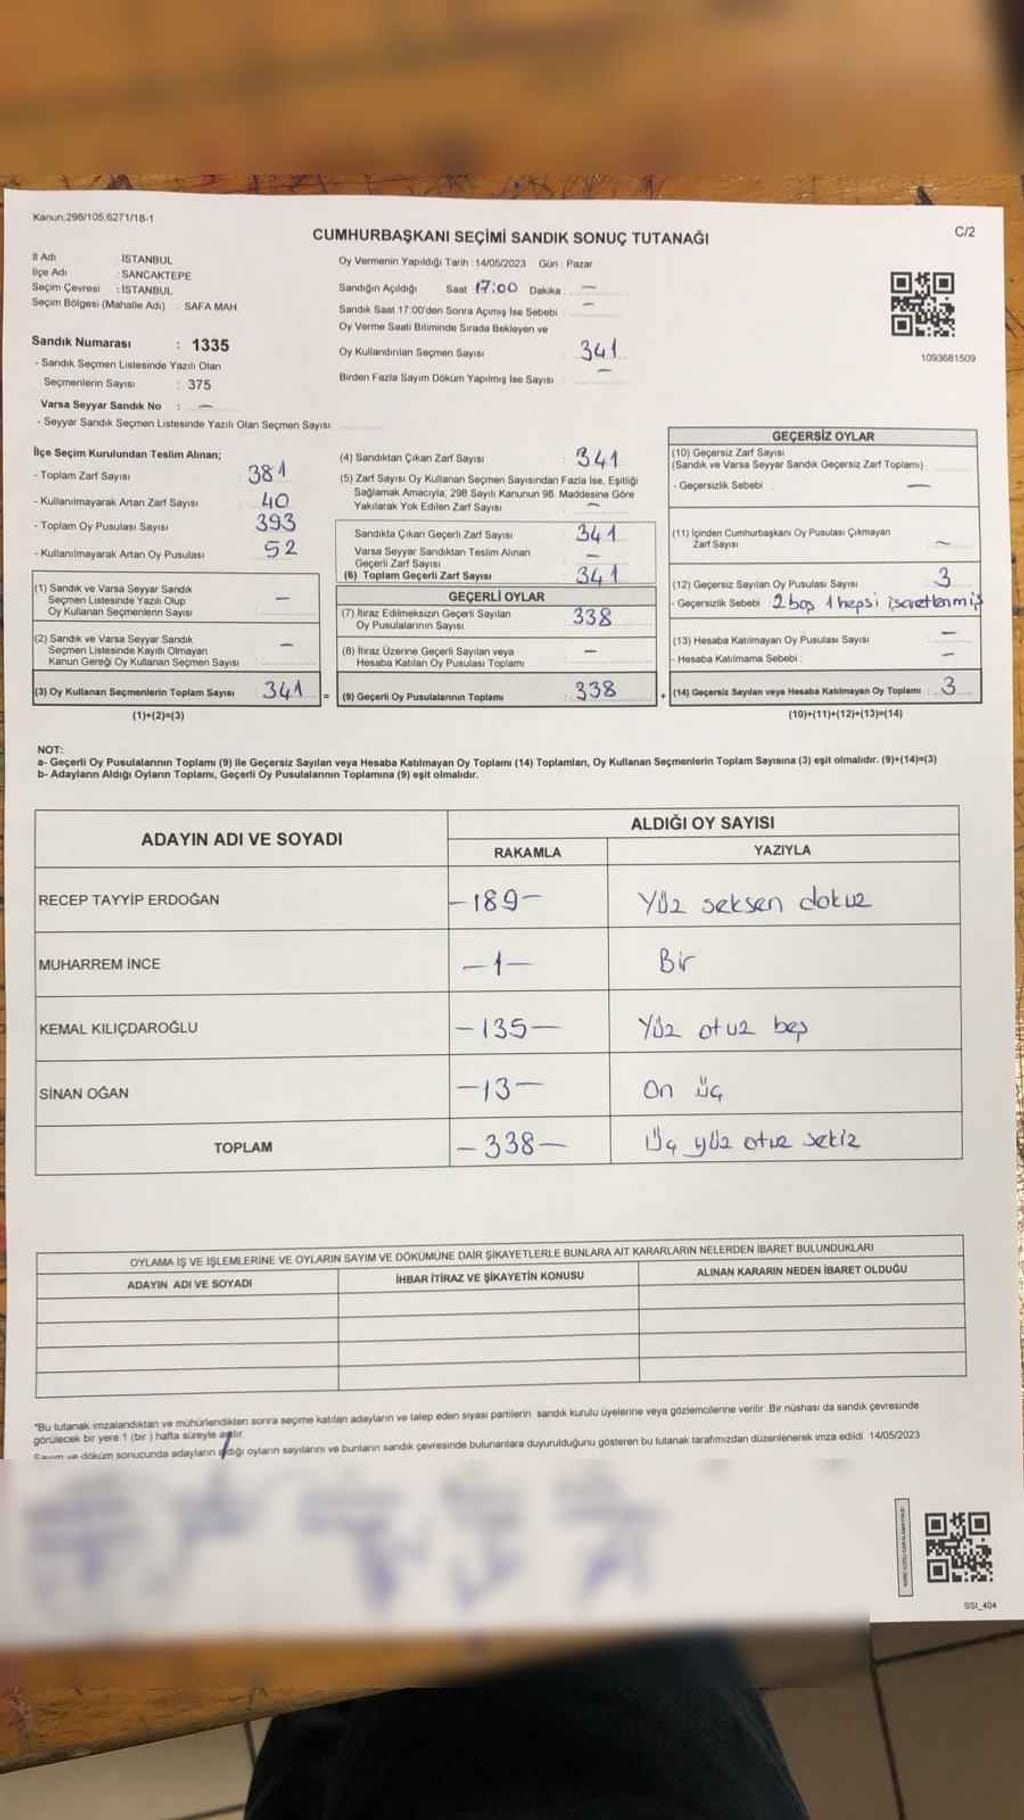 Kanun,298/105,6271/18-1
C/2
CUMHURBAŞKANI SEÇİMİ SANDIK SONUÇ TUTANAĞI
İl Adı : İSTANBUL
İlçe Adı : SANCAKTEPE
Seçim Çevresi : İSTANBUL
Seçim Bölgesi (Mahalle Adı) : SAFA MAH
Oy Vermenin Yapıldığı Tarih : 14/05/2023 Gün : Pazar
Sandığın Açıldığı Saat 17:00 Dakika : —
Sandık Saat 17:00'den Sonra Açımış İse Sebebi : —
Oy Verme Saati Bitiminde Sırada Bekleyen ve
Oy Kullandırılan Seçmen Sayısı 341
Birden Fazla Sayım Döküm Yapılmış İse Sayısı —
1093681509
Sandık Numarası : 1335
- Sandık Seçmen Listesinde Yazılı Olan
Seçmenlerin Sayısı : 375
Varsa Seyyar Sandık No : —
- Seyyar Sandık Seçmen Listesinde Yazılı Olan Seçmen Sayısı
İlçe Seçim Kurulundan Teslim Alınan;
- Toplam Zarf Sayısı 381
- Kullanılmayarak Artan Zarf Sayısı 40
- Toplam Oy Pusulası Sayısı 393
- Kullanılmayarak Artan Oy Pusulası 52
(1) Sandık ve Varsa Seyyar Sandık
Seçmen Listesinde Yazılı Olup
Oy Kullanan Seçmenlerin Sayısı —
(2) Sandık ve Varsa Seyyar Sandık
Seçmen Listesinde Kayıtlı Olmayan
Kanun Gereği Oy Kullanan Seçmen Sayısı —
(3) Oy Kullanan Seçmenlerin Toplam Sayısı 341 =
(1)+(2)=(3)
(4) Sandıktan Çıkan Zarf Sayısı : 341
(5) Zarf Sayısı Oy Kullanan Seçmen Sayısından Fazla İse, Eşitliği
Sağlamak Amacıyla, 298 Sayılı Kanunun 98. Maddesine Göre
Yakılarak Yok Edilen Zarf Sayısı —
Sandıkta Çıkan Geçerli Zarf Sayısı 341
Varsa Seyyar Sandıktan Teslim Alınan
Geçerli Zarf Sayısı —
(6) Toplam Geçerli Zarf Sayısı 341
GEÇERLİ OYLAR
(7) İtiraz Edilmeksizin Geçerli Sayılan
Oy Pusulalarının Sayısı 338
(8) İtiraz Üzerine Geçerli Sayılan veya
Hesaba Katılan Oy Pusulası Toplamı —
(9) Geçerli Oy Pusulalarının Toplamı : 338 +
GEÇERSİZ OYLAR
(10) Geçersiz Zarf Sayısı
(Sandık ve Varsa Seyyar Sandık Geçersiz Zarf Toplamı)
- Geçersizlik Sebebi : —
(11) İçinden Cumhurbaşkanı Oy Pusulası Çıkmayan
Zarf Sayısı —
(12) Geçersiz Sayılan Oy Pusulası Sayısı 3
- Geçersizlik Sebebi 2 boş 1 hepsi işaretlenmiş
(13) Hesaba Katılmayan Oy Pusulası Sayısı —
- Hesaba Katılmama Sebebi : —
(14) Geçersiz Sayılan veya Hesaba Katılmayan Oy Toplamı : 3
(10)+(11)+(12)+(13)=(14)
NOT:
a- Geçerli Oy Pusulalarının Toplamı (9) ile Geçersiz Sayılan veya Hesaba Katılmayan Oy Toplamı (14) Toplamları, Oy Kullanan Seçmenlerin Toplam Sayısına (3) eşit olmalıdır. (9)+(14)=(3)
b- Adayların Aldığı Oyların Toplamı, Geçerli Oy Pusulalarının Toplamına (9) eşit olmalıdır.
ADAYIN ADI VE SOYADI
ALDIĞI OY SAYISI
RAKAMLA YAZIYLA
RECEP TAYYİP ERDOĞAN -189- Yüz seksen dokuz
MUHARREM İNCE -1- Bir
KEMAL KILIÇDAROĞLU -135- Yüz otuz beş
SİNAN OĞAN -13- On üç
TOPLAM -338- Üç yüz otuz sekiz
OYLAMA İŞ VE İŞLEMLERİNE VE OYLARIN SAYIM VE DÖKÜMÜNE DAİR ŞİKAYETLERLE BUNLARA AİT KARARLARIN NELERDEN İBARET BULUNDUKLARI
ADAYIN ADI VE SOYADI İHBAR İTİRAZ VE ŞİKAYETİN KONUSU ALINAN KARARIN NEDEN İBARET OLDUĞU
*Bu tutanak imzalandıktan ve mühürlendikten sonra seçime katılan adayların ve talep eden siyasi partilerin sandık kurulu üyelerine veya gözlemcilerine verilir. Bir nüshası da sandık çevresinde
görülecek bir yere 1 (bir ) hafta süreyle asılır.
Sayım ve döküm sonucunda adayların aldığı oyların sayılarını ve bunların sandık çevresinde bulunanlara duyurulduğunu gösteren bu tutanak tarafımızdan düzenlenerek imza edildi. 14/05/2023
SSt_404